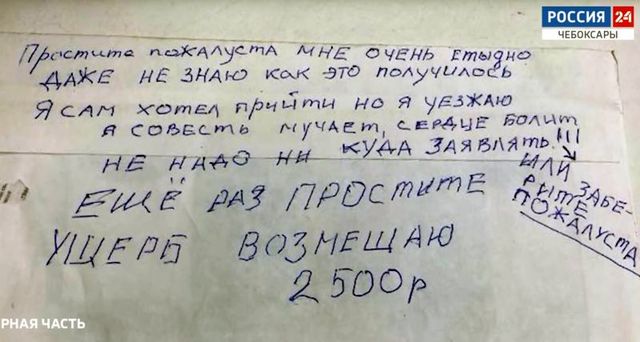 РОССИЯ 24
ЧЕБОКСАРЫ
Простите пожалуста мне очень стыдно
даже не знаю как это получилось
Я сам хотел прийти но я уезжаю
я совесть мучает, сердце болит
не надо ни куда заявлять!!!
или забе-
рите
пожалуста
ЕЩЁ РАЗ ПРОСТИТЕ
УЩЕРБ ВОЗМЕЩАЮ
2500р
РНАЯ ЧАСТЬ